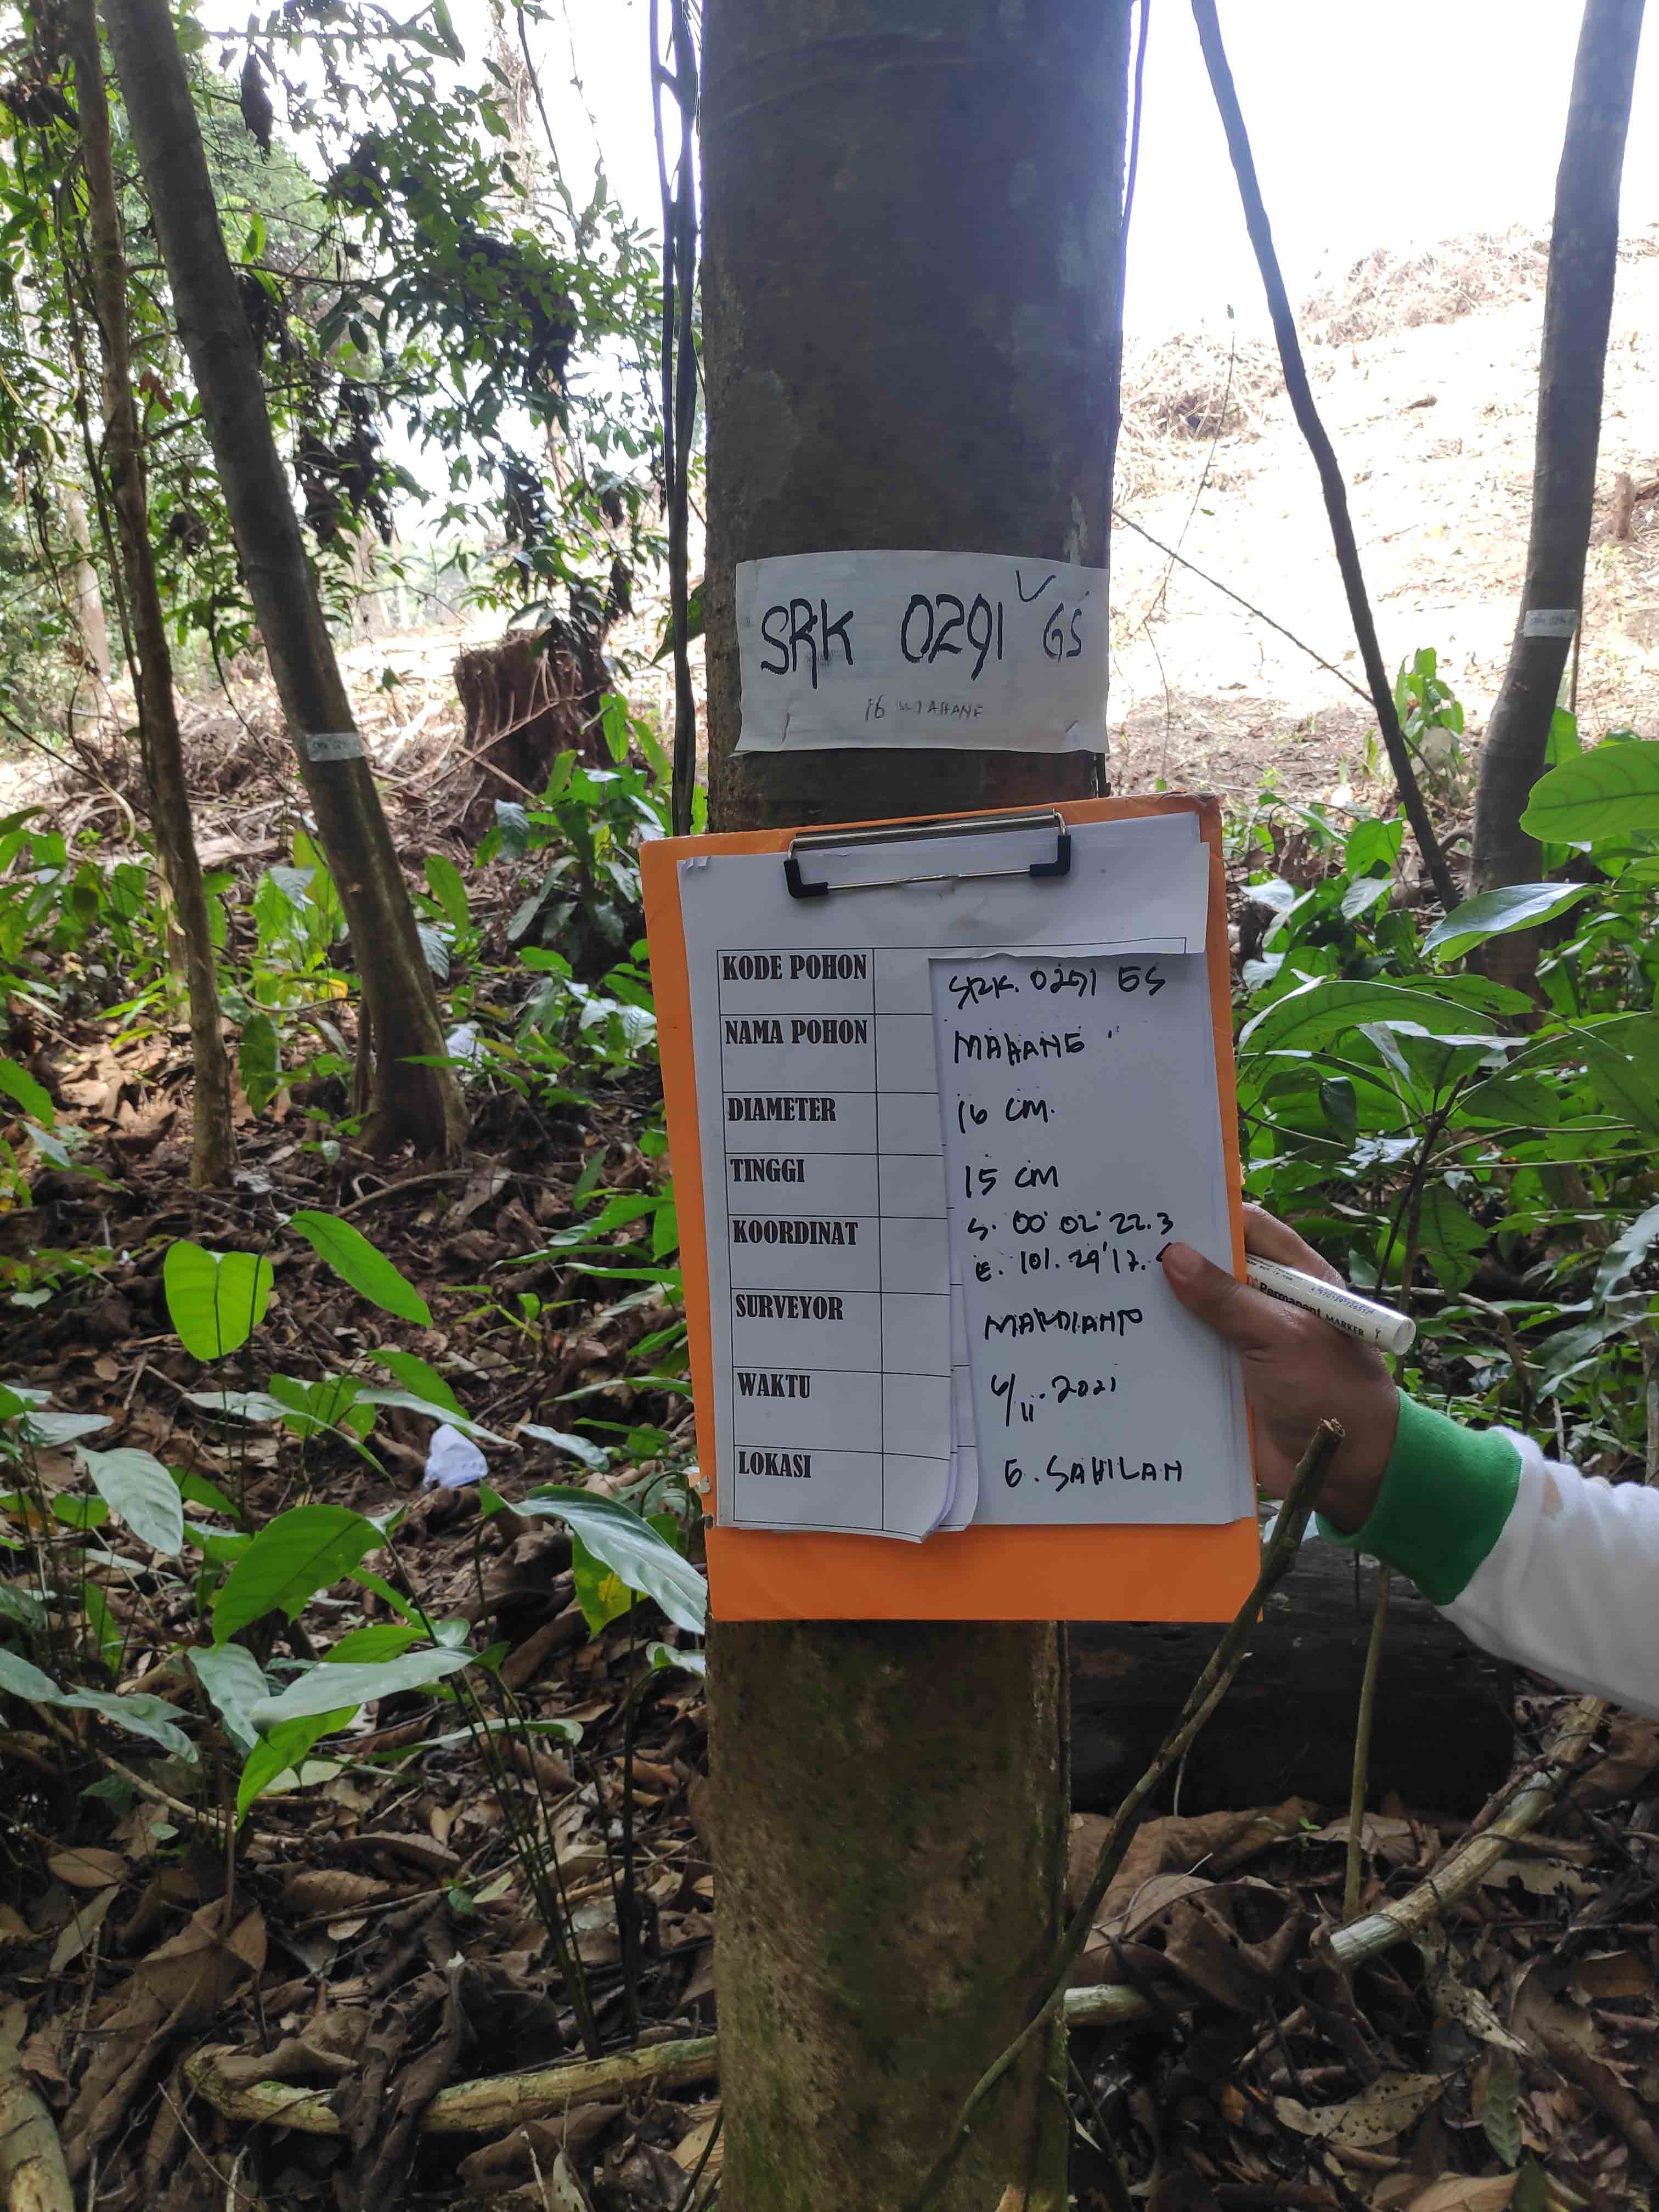 SRK 0291 GS
16 MAHANE
KODE POHON SRK. 0291 GS
NAMA POHON MAHANE
DIAMETER 16 CM.
TINGGI 15 CM
KOORDINAT S. 00° 02' 22.3
E. 101. 29' 17.
SURVEYOR MARDIANTO
WAKTU 6/11.2021
LOKASI G. SAHILAN
Permanent MARKER